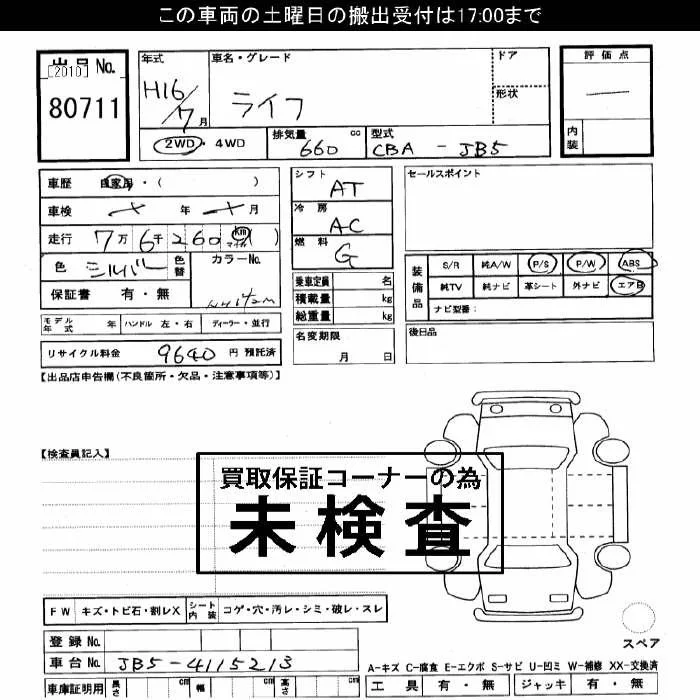 この車両の土曜日の搬出受付は17:00まで
出品No.
[2010]
80711
年式
H16/7月
車名・グレード
ライフ
ドア
形状
評価点
内装
2WD・4WD
排気量 660 cc
型式 CBA - JB5
車歴 自家用・( )
車検 年 月
走行 7万6千260 km マイル ( )
色 シルバー 色替
カラーNo.
保証書 有・無
モデル年式 年 ハンドル 左・右 ディーラー・並行
リサイクル料金 9640 円 預託済
シフト AT
冷房 AC
燃料 G
乗車定員 名
積載量 kg
総重量 kg
名変期限
月 日
セールスポイント
装備品
S/R 純A/W P/S P/W ABS
純TV 純ナビ 革シート 外ナビ エアB
ナビ型番:
後日品
【出品店申告欄(不良箇所・欠品・注意事項等)】
【検査員記入】
買取保証コーナーの為
未検査
FW キズ・トビ石・割レX シート内装 コゲ・穴・汚レ・シミ・破レ・スレ
登録No.
車台No. JB5-4115213
車庫証明用 長さ cm 幅 cm 高さ cm
スペア
A-キズ C-腐食 E-エクボ S-サビ U-凹ミ W-補修 XX-交換済
工具 有・無 ジャッキ 有・無